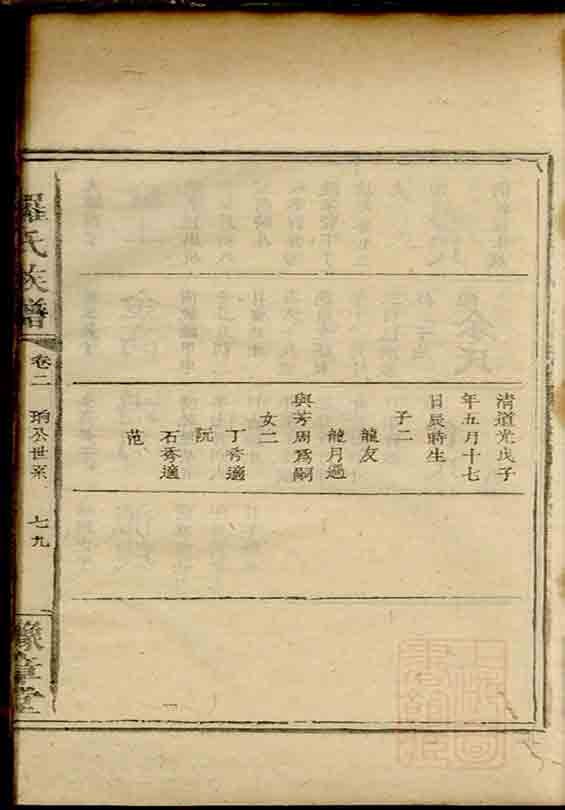 清道光戊子
年五月十七
日辰時生
子二
龍友
龍月過
與芳周爲嗣
女二
丁秀適
阮
石秀適
范
羅氏族譜
卷二
珦公世系
七九
豫章堂